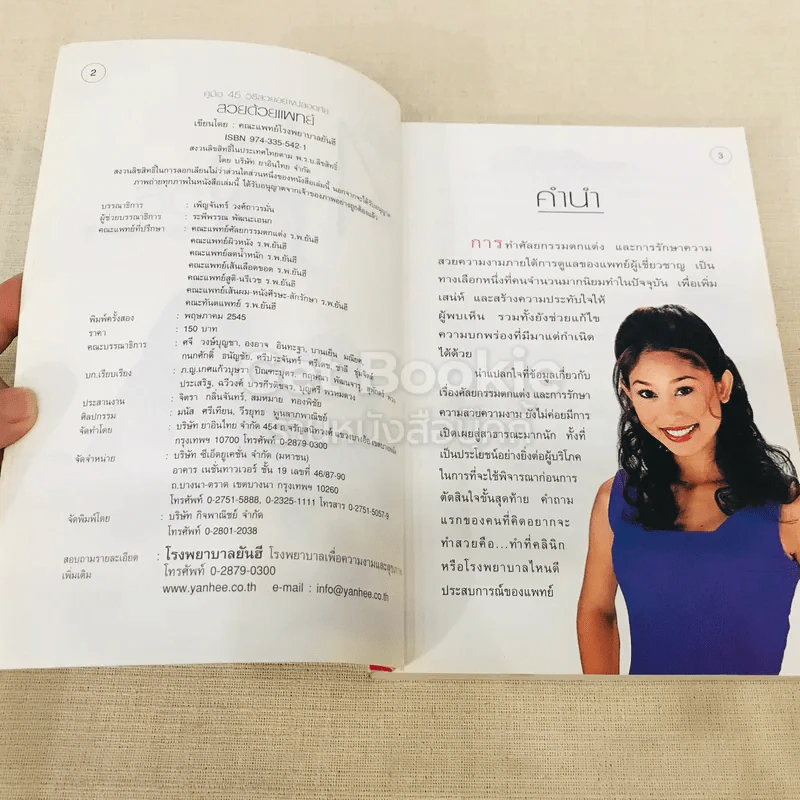 2
คู่มือ 45 วิธีสวยอย่างปลอดภัย
สวยด้วยแพทย์
เขียนโดย : คณะแพทย์โรงพยาบาลยันฮี
ISBN 974-335-542-1
สงวนลิขสิทธิ์ในประเทศไทยตาม พ.ร.บ.ลิขสิทธิ์
โดย บริษัท ยาอินไทย จำกัด
สงวนลิขสิทธิ์ในการลอกเลียนไม่ว่าส่วนใดส่วนหนึ่งของหนังสือเล่มนี้ นอกจากจะได้รับอนุญาต
ภาพถ่ายทุกภาพในหนังสือเล่มนี้ ได้รับอนุญาตจากเจ้าของภาพอย่างถูกต้องแล้ว
บรรณาธิการ : เพ็ญจันทร์ วงศ์ถาวรมั่น
ผู้ช่วยบรรณาธิการ : ระพีพรรณ พัฒนะเอนก
คณะแพทย์ที่ปรึกษา : คณะแพทย์ศัลยกรรมตกแต่ง ร.พ.ยันฮี
คณะแพทย์ผิวหนัง ร.พ.ยันฮี
คณะแพทย์ลดน้ำหนัก ร.พ.ยันฮี
คณะแพทย์เส้นเลือดขอด ร.พ.ยันฮี
คณะแพทย์สูติ-นรีเวช ร.พ.ยันฮี
คณะแพทย์เส้นผม-หนังศีรษะ-สักรักษา ร.พ.ยันฮี
คณะทันตแพทย์ ร.พ.ยันฮี
พิมพ์ครั้งสอง : พฤษภาคม 2545
ราคา : 150 บาท
คณะบรรณาธิการ : ศจี วงษ์บุญชา, องอาจ อินทะฐา, บานเย็น
กนกศักดิ์ ธนัญชัย, ศรีประจันทร์ ศรีเดช, ชาลี ชุมไพร์
บก.เรียบเรียง : ภ.ญ.เกศแก้วบุษรา ปัณฑะบุตร, กฤษณา พัฒนจารุ
ประเสริฐ, ฉวีวงศ์ บวรกีรติขจร, บุญศรี พรหมดวง
ประสานงาน : จิตรา กลิ่นจันทร์, สมหมาย ทองพิชัย
ศิลปกรรม : มนัส ศรีเทียน, วีรยุทธ พูนลาภพาณิชย์
จัดทำโดย : บริษัท ยาอินไทย จำกัด 454 ถ.จรัญสนิทวงศ์ แขวงบางอ้อ
กรุงเทพฯ 10700 โทรศัพท์ 0-2879-0300
จัดจำหน่าย : บริษัท ซีเอ็ดยูเคชั่น จำกัด (มหาชน)
อาคาร เนชั่นทาวเวอร์ ชั้น 19 เลขที่ 46/87-90
ถ.บางนา-ตราด เขตบางนา กรุงเทพฯ 10260
โทรศัพท์ 0-2751-5888, 0-2325-1111 โทรสาร 0-2751-5057-9
จัดพิมพ์โดย : บริษัท กิจพาณิชย์ จำกัด
โทรศัพท์ 0-2801-2038
สอบถามรายละเอียด : โรงพยาบาลยันฮี โรงพยาบาลเพื่อความงามและสุขภาพ
เพิ่มเติม โทรศัพท์ 0-2879-0300
www.yanhee.co.th e-mail : info@yanhee.co.th
3
คำนำ
การทำศัลยกรรมตกแต่ง และการรักษาความ
สวยความงามภายใต้การดูแลของแพทย์ผู้เชี่ยวชาญ เป็น
ทางเลือกหนึ่งที่คนจำนวนมากนิยมทำในปัจจุบัน เพื่อเพิ่ม
เสน่ห์ และสร้างความประทับใจให้
ผู้พบเห็น รวมทั้งยังช่วยแก้ไข
ความบกพร่องที่มีมาแต่กำเนิด
ได้ด้วย
น่าแปลกใจที่ข้อมูลเกี่ยวกับ
เรื่องศัลยกรรมตกแต่ง และการรักษา
ความสวยความงาม ยังไม่ค่อยมีการ
เปิดเผยสู่สาธารณะมากนัก ทั้งที่
เป็นประโยชน์อย่างยิ่งต่อผู้บริโภค
ในการที่จะใช้พิจารณาก่อนการ
ตัดสินใจขั้นสุดท้าย คำถาม
แรกของคนที่คิดอยากจะ
ทำสวยคือ...ทำที่คลินิก
หรือโรงพยาบาลไหนดี
ประสบการณ์ของแพทย์
Bookie
หนังสือบุกกี้